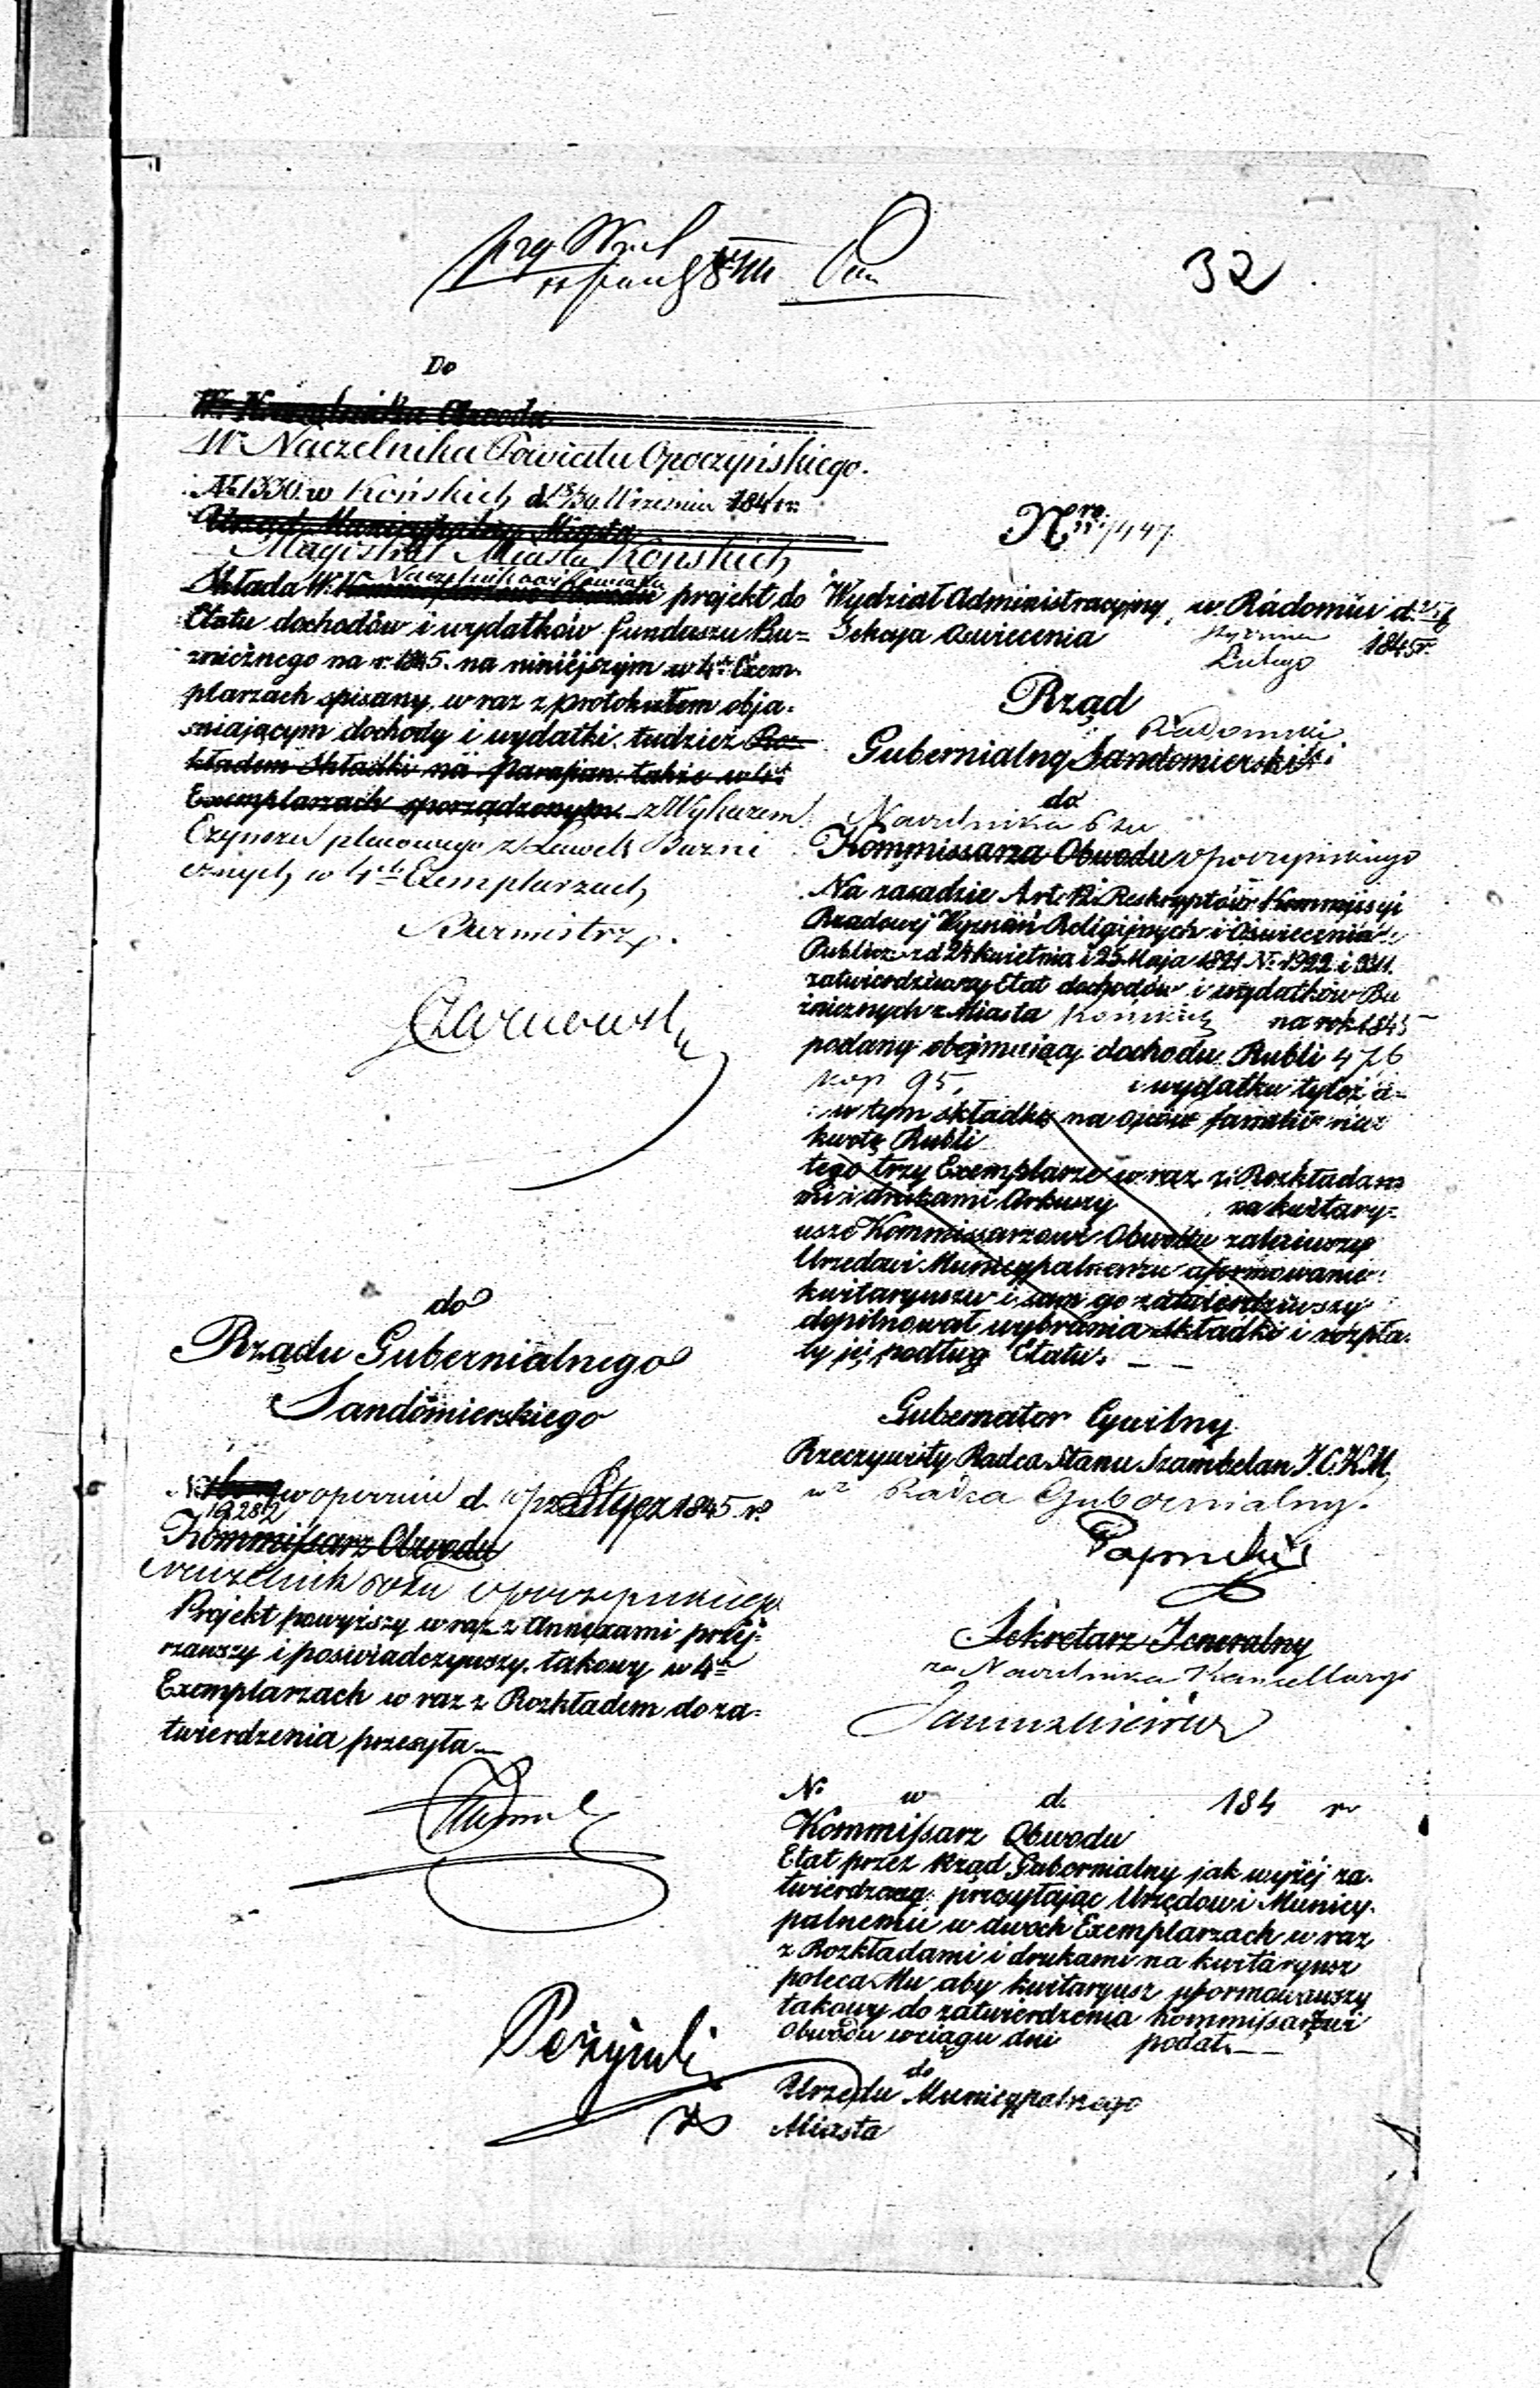 32
Do
W. Naczelnika Obwodu
W. Naczelnika Powiatu Opoczyńskiego.
No 1330. w Końskich d. 18/30 Września 1844 r.
Urząd Municypalny Miasta
Magistrat Miasta Końskich
Naczelnikowi Powiatu
Składa W. Kommissarzowi Obwodu projekt do
Etatu dochodów i wydatków funduszu Bu=
żnicznego na r. 1845. na niniejszym w 4ch Exem-
plarzach spisany, w raz z protokułem obja-
śniającym dochody i wydatki, tudzież Roz-
kładem składki na Parafian także w 4ch
Exemplarzach sporządzonym z Wykazem
Czynszu placowego z Ławek Buzni
cznych w 4ch Exemplarzach
Burmistrz.
Czarnowski
do
Rządu Gubernialnego
Sandomierskiego
w Opocznie d. Stycz 1845 r.
19282
Kommissarz Obwodu
Naczelnik Powiatu Opoczyńskiego
Projekt powyższy w raz z Annexami przej=
rzawszy i poświadczywszy, takowy w 4ch
Exemplarzach w raz z Rozkładem do za=
twierdzenia przesyła.
Nro 1447
Wydział Administracyjny, w Radomiu d.
Sekcya Oświecenia Stycznia 1845 r.
Lutego
Rząd
Radomski
Gubernialny Sandomierski
do
Naczelnika Ptu
Kommissarza Obwodu Opoczyńskiego
Na zasadzie Art. 12. Reskryptów Kommissyi
Rządowej Wyznań Religijnych i Oświecenia
Publicz. z d 24 kwietnia i 25 Maja 1821 No 1922 i
zatwierdziwszy Etat dochodów i wydatków Bu
żnicznych z Miasta Końskich na rok 1845
podany obejmujący dochodu Rubli 476
kop 95, i wydatku tyleż a=
w tym składkę na ogół familii na
kwotę Rubli
tego trzy Exemplarze w raz z Rozkładam
mi i drukami Arkuszy na kwitary=
usze Kommissarzowi Obwodu zaleciwszy
Urzędowi Municypalnemu uformowanie
kwitaryuszu i sam go zatwierdziwszy
dopilnował wybrania składki i rozpła-
ty jej podług Etatu.
Gubernator Cywilny
Rzeczywisty Radca Stanu Szambelan J. C. K. M.
wz Radca Gubernialny.
Sekretarz Jeneralny
za Naczelnika Kancellaryi
No w d. 184 r.
Kommissarz Obwodu
Etat przez Rząd Gubernialny jak wyżej za-
twierdzony przesyłając Urzędowi Municy-
palnemu w dwóch Exemplarzach w raz
z Rozkładami i drukami na kwitaryusz
poleca Mu aby kwitaryusz uformowawszy
takowy do zatwierdzenia Kommissarzowi
Obwodu w ciągu dni podał.
do
Urzędu Municypalnego
Miasta